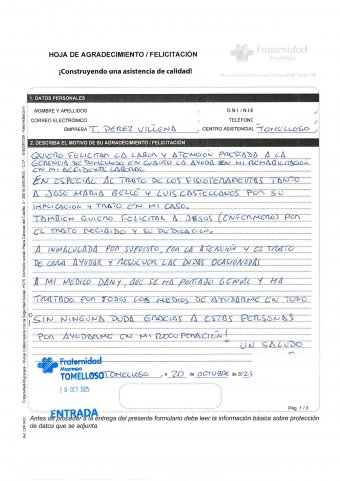 HOJA DE AGRADECIMIENTO / FELICITACIÓN
Fraternidad
Muprespa
¡Construyendo una asistencia de calidad!
1. DATOS PERSONALES
NOMBRE Y APELLIDOS D.N.I. / N.I.E
CORREO ELECTRÓNICO TELÉFONO
EMPRESA T. PEREZ VILLENA CENTRO ASISTENCIAL TOMELLOSO
2. DESCRIBA EL MOTIVO DE SU AGRADECIMIENTO / FELICITACIÓN
QUIERO FELICITAR LA LABOR Y ATENCION PRESTADA A LA
GERENCIA DE TOMELLOSO EN CUANTO LA AYUDA EN MI REHABILITACION
EN MI ACCIDENTE LABORAL
EN ESPECIAL AL TRATO DE LOS FISIOTERAPEUTAS TANTO
A JOSE MARIA BELLÓ Y LUIS CASTELLANOS POR SU
IMPLICACION Y TRATO EN MI CASO.
TAMBIEN QUIERO FELICITAR A JESUS (ENFERMERO) POR
EL TRATO RECIBIDO Y SU DEDICACION.
A INMACULADA POR SUPUESTO, POR LA ATENCIÓN Y EL TRATO
DE CARA AYUDAR Y RESOLVER LAS DUDAS OCASIONADAS
A MI MEDICO DANY, QUE SE HA PORTADO GENIAL Y HA
TRATADO POR TODOS LOS MEDIOS DE AYUDARME EN TODO
¡SIN NINGUNA DUDA GRACIAS A ESTAS PERSONAS
POR AYUDARME EN MI RECUPERACIÓN!
UN SALUDO
Fraternidad
Muprespa
TOMELLOSO
TOMELLOSO, a 20 de OCTUBRE de 2025
20 OCT 2025
ENTRADA
Pág. 1 / 2
Antes de proceder a la entrega del presente formulario debe leer la información básica sobre protección
de datos que se adjunta.